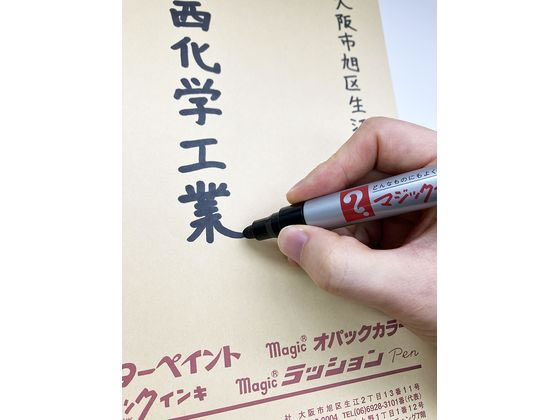 大阪市旭区生江
西化学工業
どんなものにもよく
マジック
ターペイント
Magic® オパックカラー
ックインキ
Magic® ラッション Pen
社 大阪市旭区生江2丁目13番11号
0004 TEL(06)6928-3101番(代表)
1丁目1番12号